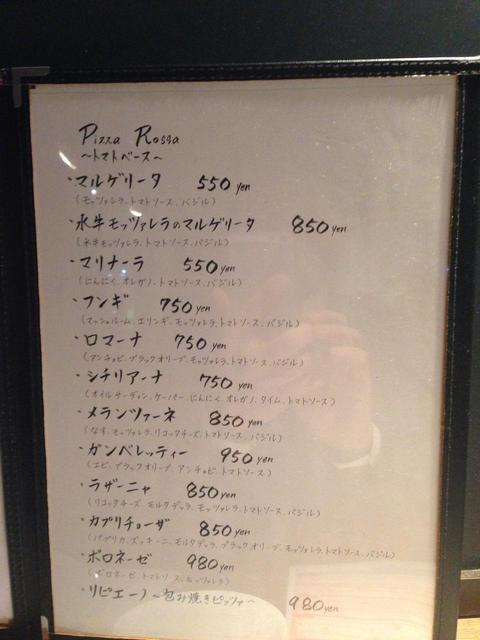 Pizza Rossa
～トマトベース～
・マルゲリータ 550 yen
(モッツァレラ、トマトソース、バジル)
・水牛モッツァレラのマルゲリータ 850 yen
(水牛モッツァレラ、トマトソース、バジル)
・マリナーラ 550 yen
(にんにく、オレガノ、トマトソース、バジル)
・フンギ 750 yen
(マッシュルーム、エリンギ、モッツァレラ、トマトソース、バジル)
・ロマーナ 750 yen
(アンチョビ、ブラックオリーブ、モッツァレラ、トマトソース、バジル)
・シチリアーナ 750 yen
(オイルサーディン、ケーパー、にんにく、オレガノ、タイム、トマトソース)
・メランツァーネ 850 yen
(なす、モッツァレラ、リコッタチーズ、トマトソース、バジル)
・ガンベレッティー 950 yen
(エビ、ブラックオリーブ、アンチョビ、トマトソース)
・ラザーニャ 850 yen
(リコッタチーズ、モルタデッラ、モッツァレラ、トマトソース、バジル)
・カプリチョーザ 850 yen
(パプリカ、ズッキーニ、モルタデッラ、ブラックオリーブ、モッツァレラ、トマトソース、バジル)
・ボロネーゼ 980 yen
(ボロネーゼ、トマトソース、モッツァレラ)
・リピエーノ～包み焼きピッツァ～ 980 yen